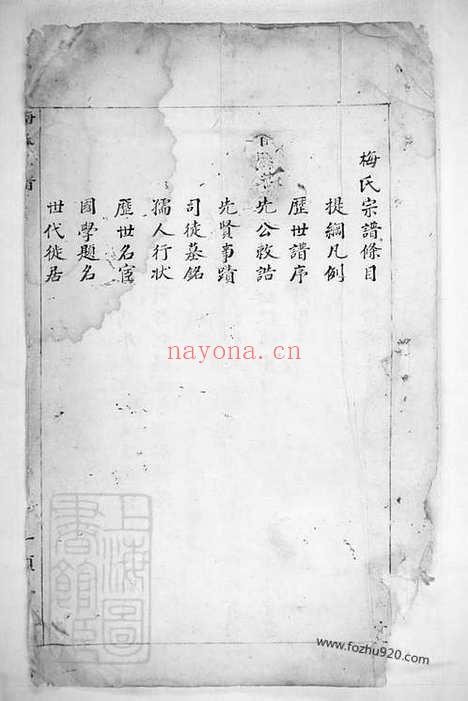 梅氏宗譜條目
提綱凡例
歷世譜序
先公敕誥
先賢事蹟
司徒墓銘
孺人行狀
歷世名宦
國學題名
世代徙居
nayona.cn
上海圖書館藏
www.fozhu920.com